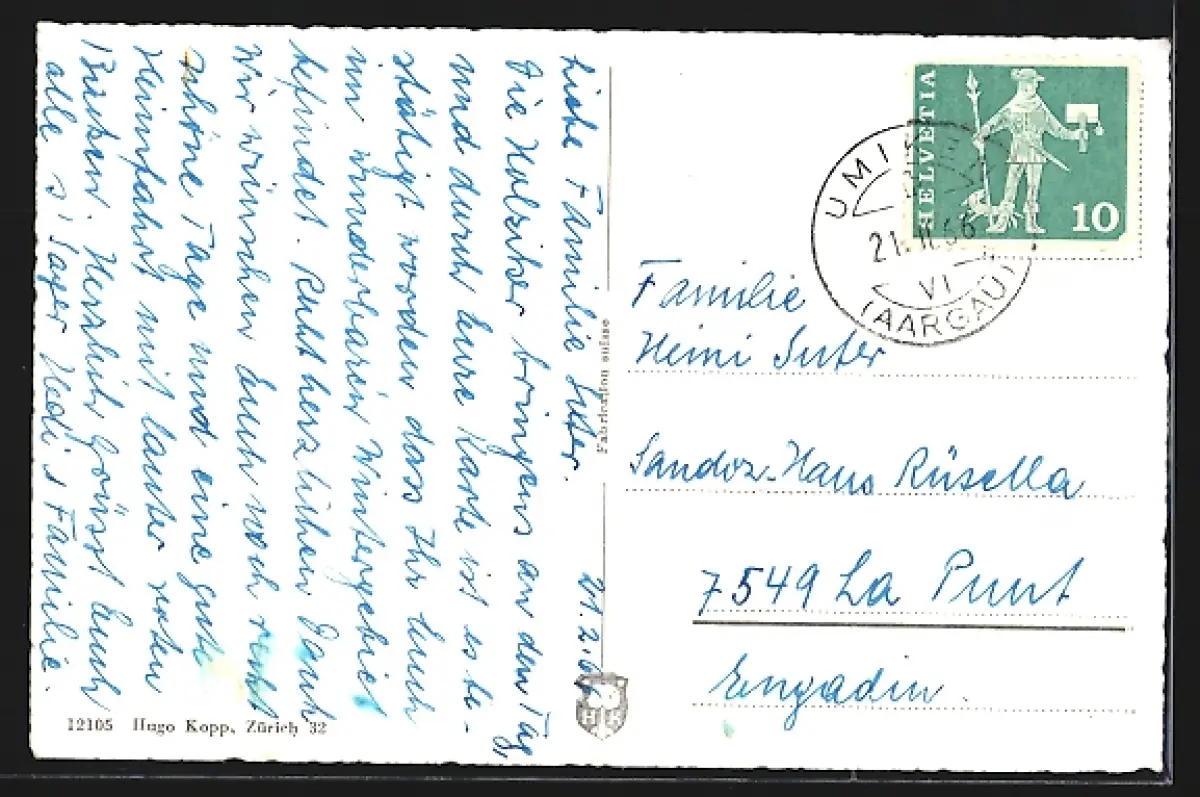 21.2.66
Liebe Familie Suter.
Die Holziker bringens an den Tag,
und durch Eure Karte ist es be-
stätigt worden dass Ihr Euch
im wunderbaren Wintergebiet
befindet. Recht herzlichen Dank
Wir wünschen Euch noch recht
schöne Tage und eine gute
Heimfahrt mit lauter roten
Backen. Herzlich grüsst Euch
alle s' Sager Hedi's Familie.
12105 Hugo Kopp, Zürich 32
Fabrication suisse
HELVETIA
10
21. II. 66
VI
(AARGAU)
Familie
Heini Suter
Sandoz-Haus Rüsella
7549 La Punt
Engadin.